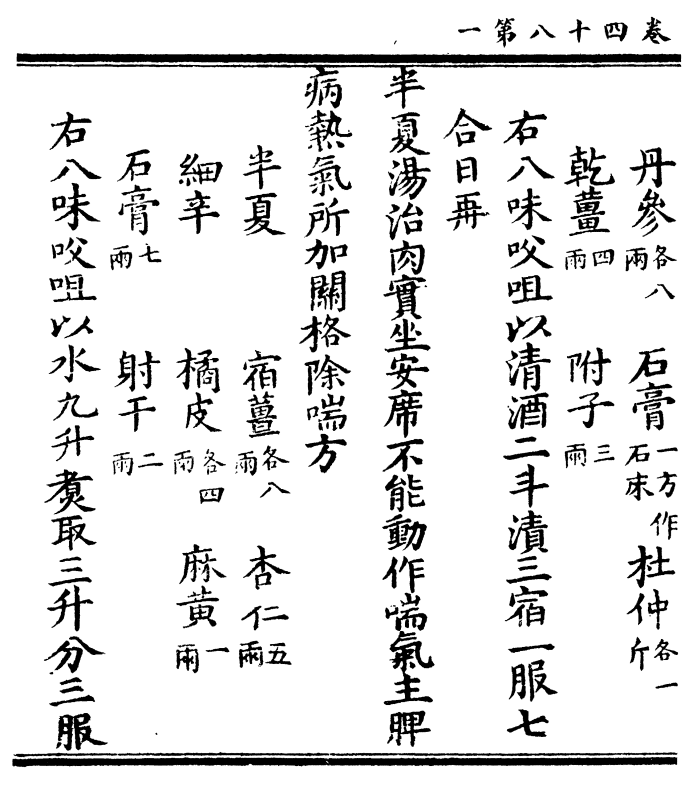 卷四十八第一
丹參各八兩　石膏一方作石床　杜仲各一斤
乾薑四兩　附子三兩
右八味㕮咀以清酒二斗漬三宿一服七
合日再
半夏湯治肉實坐安席不能動作喘氣主脾
病熱氣所加關格除喘方
半夏　宿薑各八兩　杏仁五兩
細辛　橘皮各四兩　麻黃一兩
石膏七兩　射干二兩
右八味㕮咀以水九升煑取三升分三服